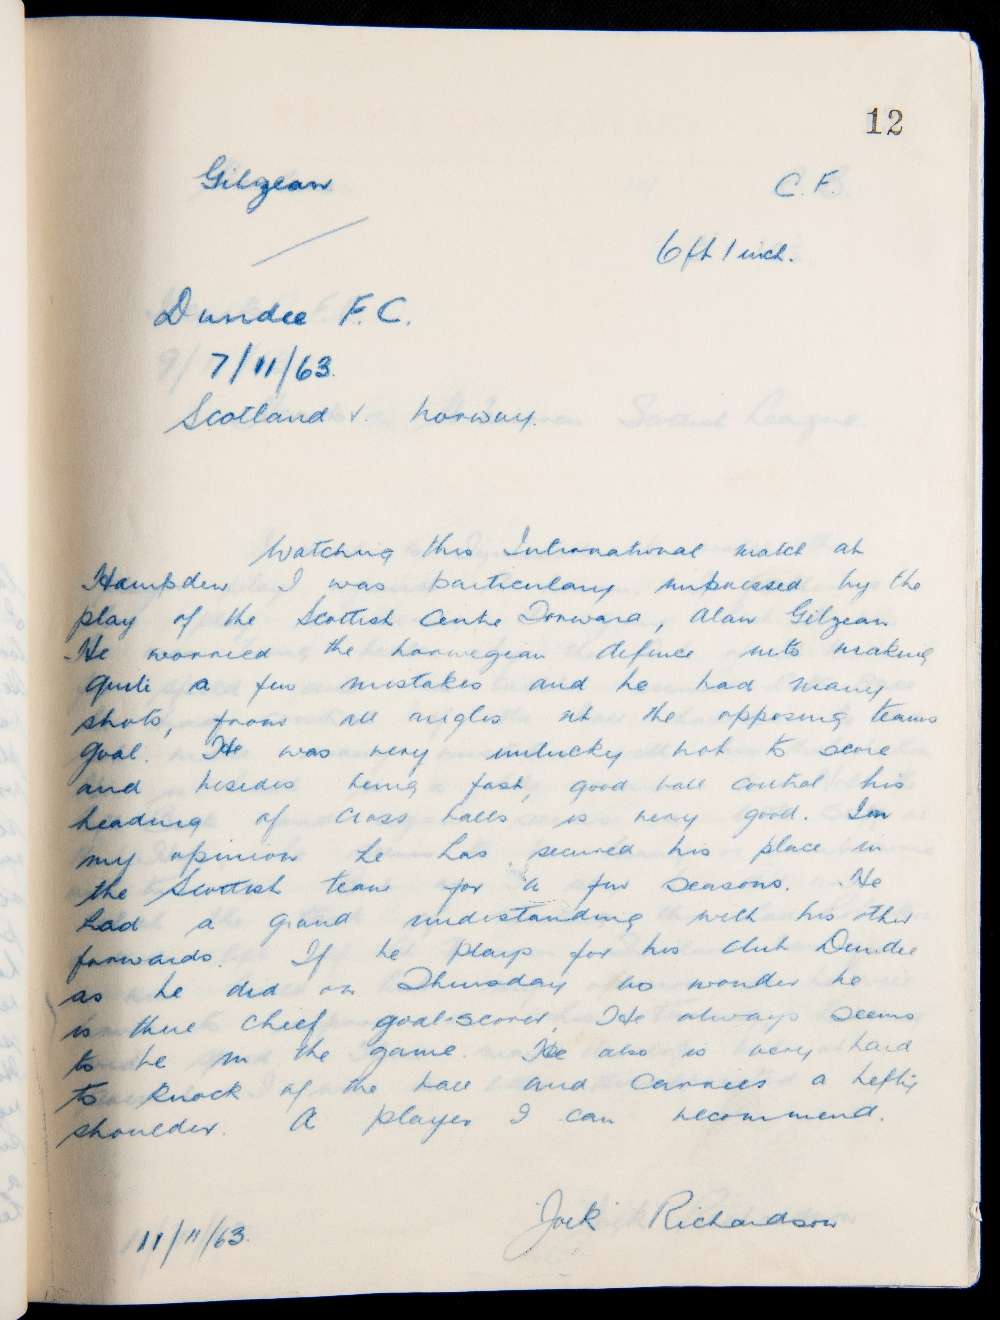 12
Gilzean C.F.
6ft 1 inch.
Dundee F.C.
7/11/63.
Scotland v. Norway.
Watching this International match at
Hampden I was particulary impressed by the
play of the Scottish Centre Forward, Alan Gilzean
He worried the Norwegian defence into making
quite a few mistakes and he had many
shots, from all angles at the opposing teams
goal. He was very unlucky not to score
and besides being fast, good ball control his
heading of cross balls is very good. In
my opinion he has secured his place in
the Scottish team for a few seasons. He
had a grand understanding with his other
forwards. If he plays for his club Dundee
as he did on Thursday no wonder he
is their chief goal-scorer. He always seems
to be in the game. He also is very hard
to knock of the ball and carries a hefty
shoulder. A player I can recommend.
Jock Richardson
11/11/63.